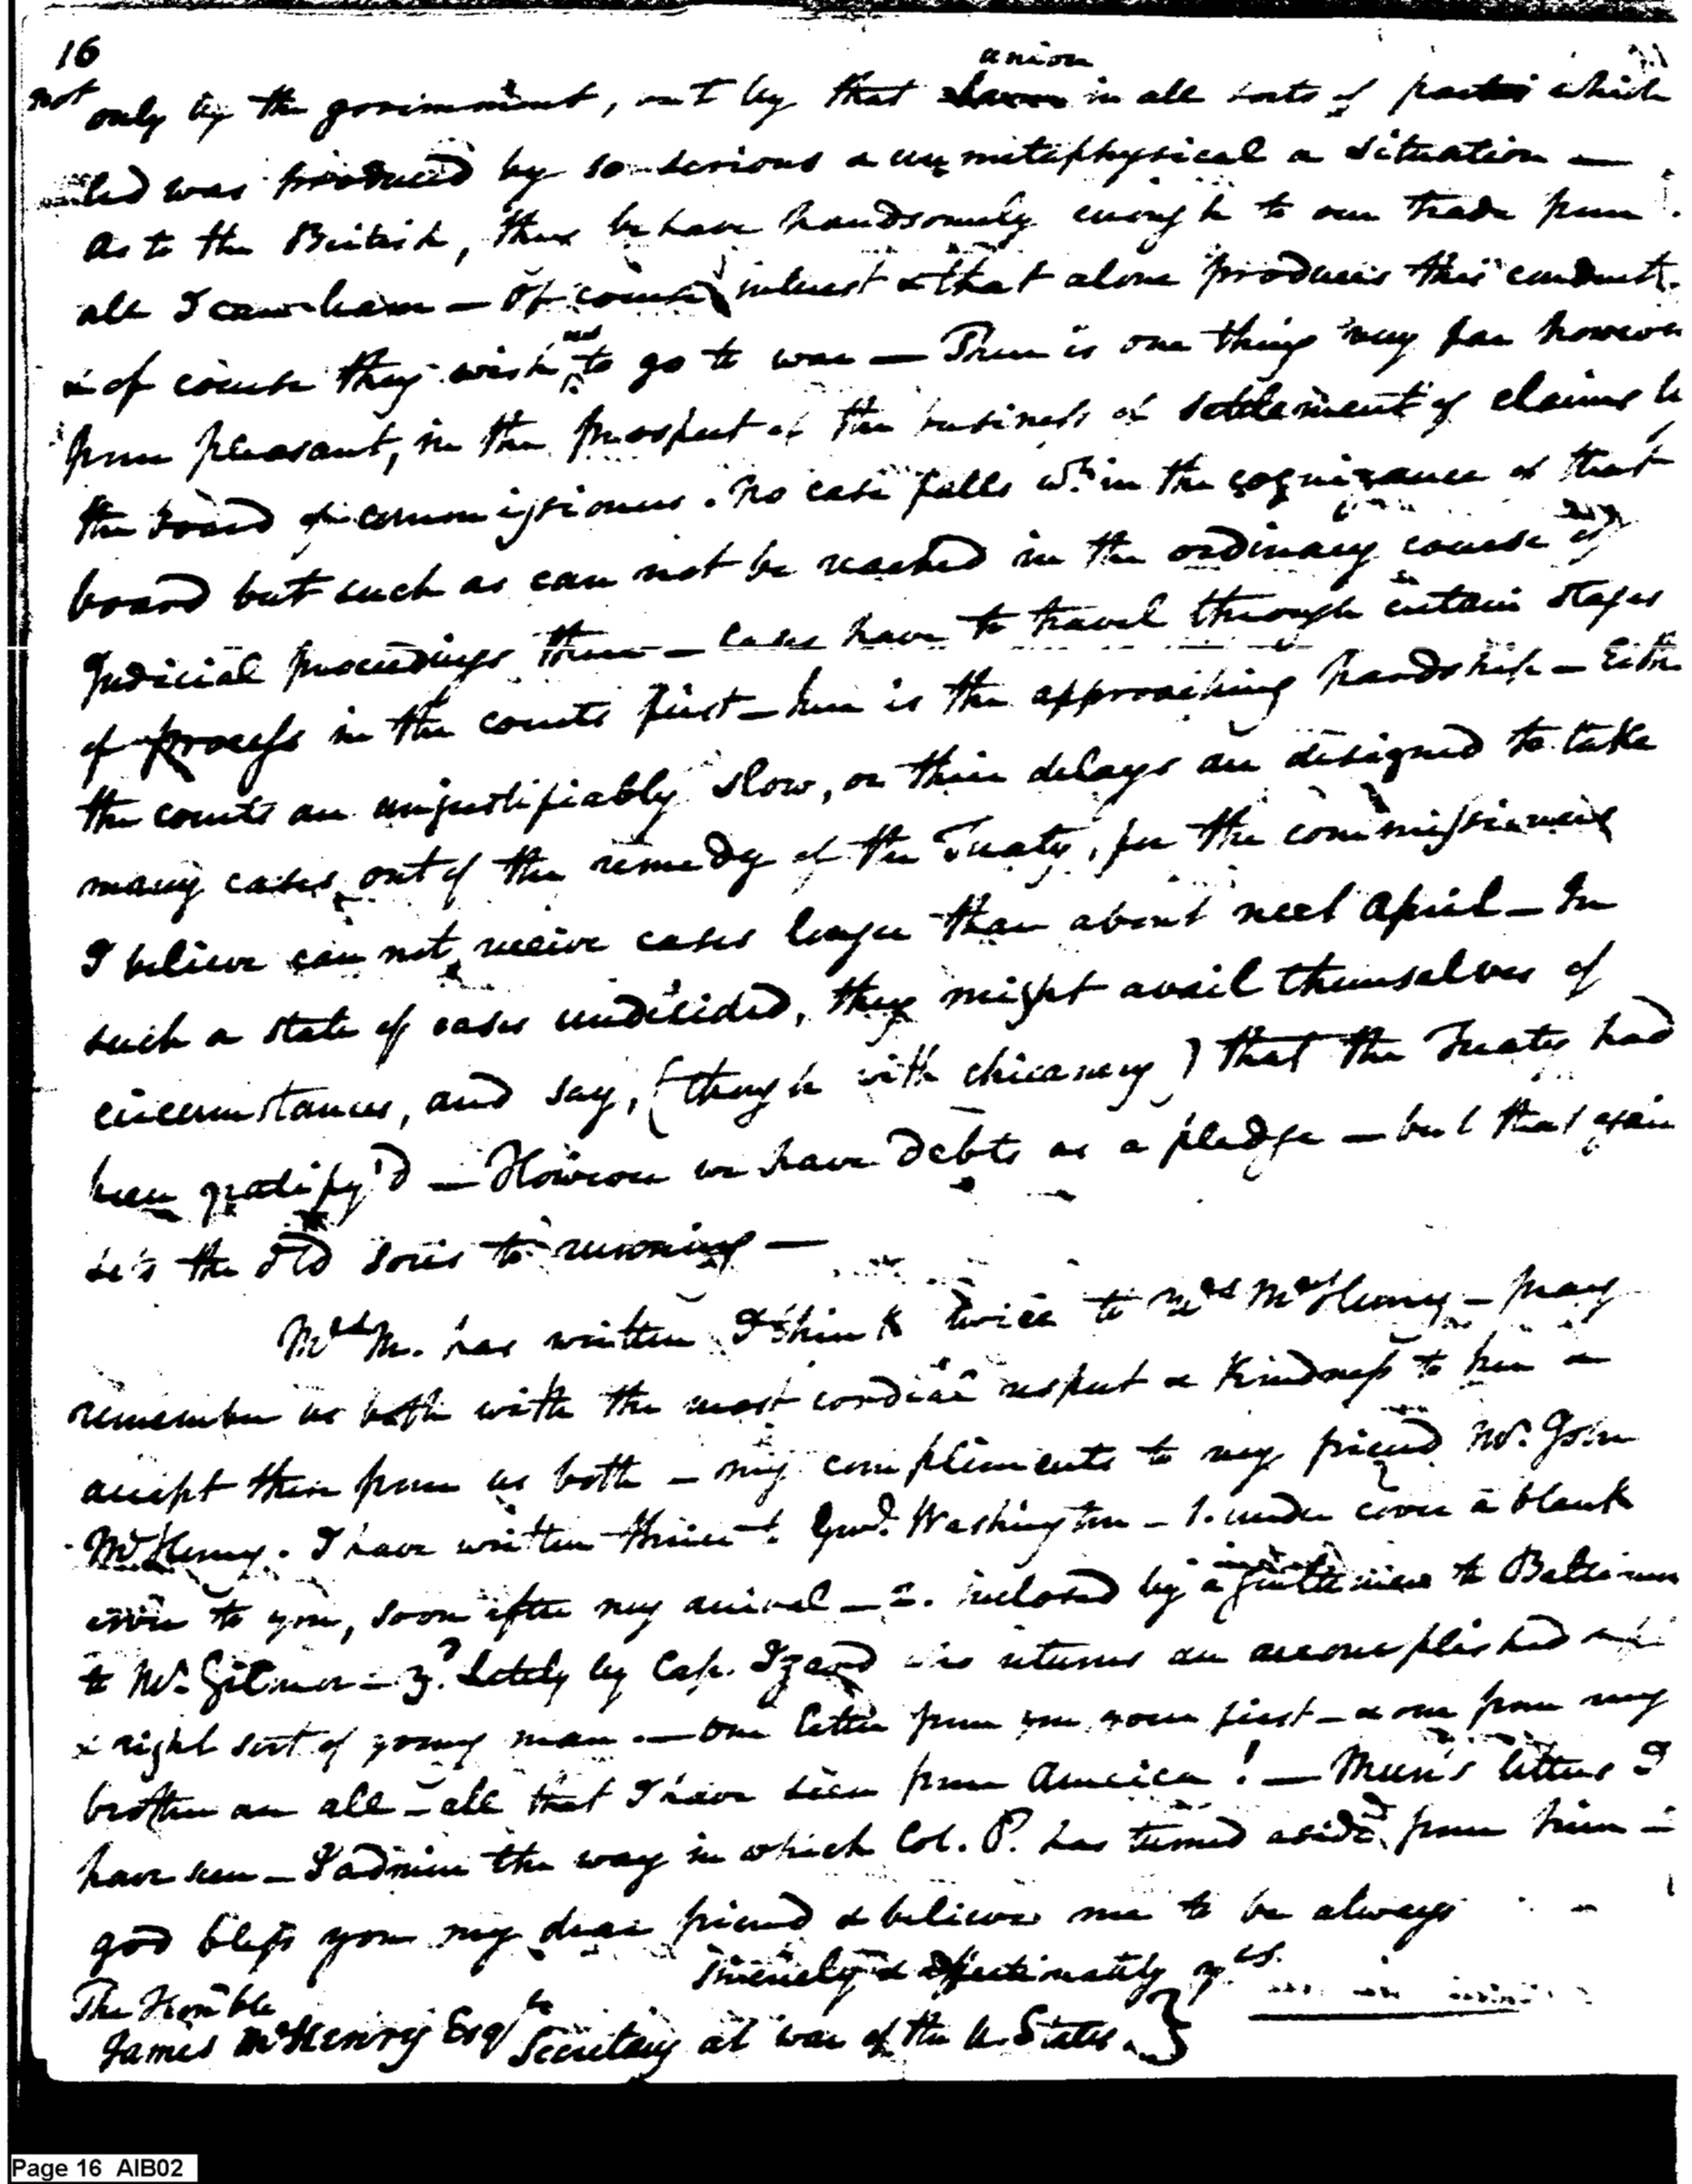 16
union
not only by the government, but by that in all sorts of parties which
was produced by so serious & unmetaphysical a situation —
As to the British, they behave handsomely enough to our trade from
all I can learn — Of course interest & that alone produces this conduct.
& of course they wish not to go to war — There is one thing very far however
from pleasant, in the prospect of the business of settlement of claims
the board of commissioners. No case falls wth.in the cognizance of that
board but such as can not be reached in the ordinary course of
Judicial proceedings there — Cases have to travel through certain stages
of process in the courts first — here is the approaching hardship —
the courts are unjustifiably slow, or their delays are designed to take
many cases out of the remedy of the Treaty, for the commissioners
I believe can not receive cases longer than about next April — In
such a state of cases undecided, they might avail themselves of
circumstances, and say, (though with chicanery) that the Treaty had
been — However we have debts as a pledge — but that again
sets the old sores to running —
Mrs. M. has written I think twice to Mrs McHenry — pray
remember us both with the most cordial respect & kindness to her &
accept them from us both — my compliments to my friend Mr. John
McHenry. I have written thrice to Genl. Washington — 1. under cover a blank
cover to you, soon after my arrival — 2. inclosed by a gentleman to Baltimore
to Mr. Gilmor — 3d. lately by Cap. Izard who returns an accomplished
& right sort of young man. — One letter from you, your first — & one from my
brother are all — all that I have seen from America! — letters I
have seen — I admire the way in which Col. P. has turned aside from him —
god bless you my dear friend & believe me to be always
sincerely & affectionately yrs.
The Honble
James McHenry Esqr Secretary at war of the U. States. }
Page 16 AIB02